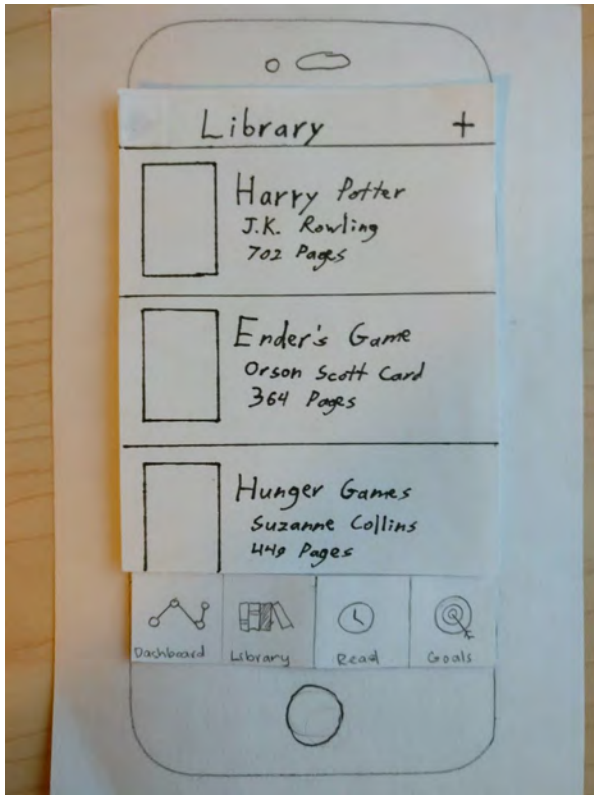 Library +
Harry Potter
J.K. Rowling
702 Pages
Ender's Game
Orson Scott Card
364 Pages
Hunger Games
Suzanne Collins
440 Pages
Dashboard Library Read Goals